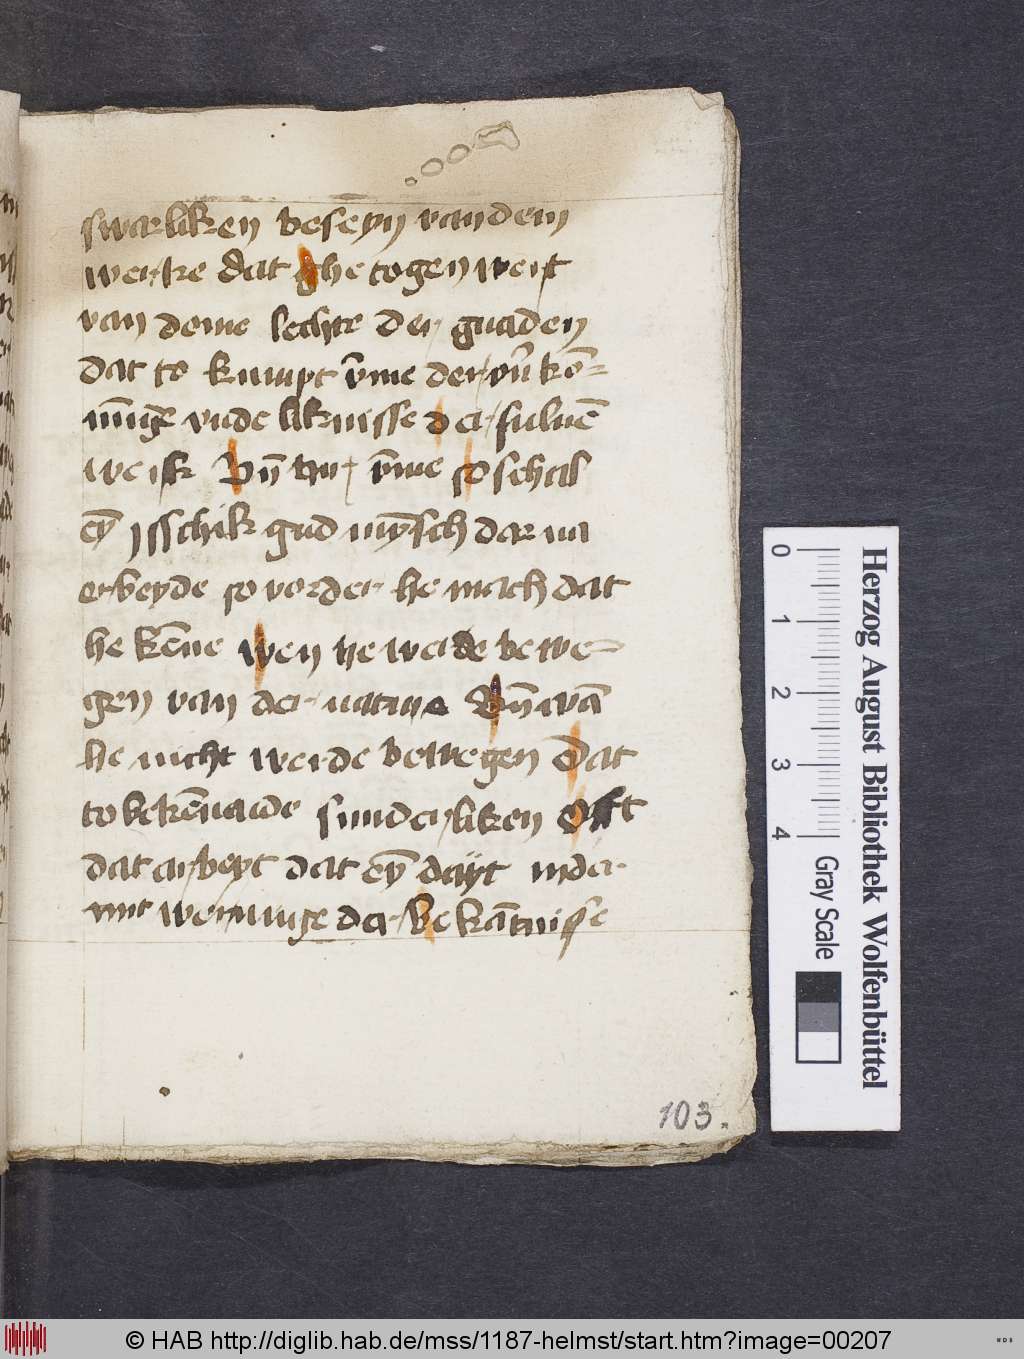 swarliken beseyn van dem
werke dat ghe togen wert
van deme lechte der gnaden
dat to kumpt v̄me der vn̄ kō-
mīge vnde liknisse der suluē
we isk Vn̄ hir v̄me so schal
eȳ Jsschik gud mȳsch dar na
erbeyde so vorder he mach dat
he kēne wen he werde bewe-
gen van der nature Vn̄ wā
he nicht werde bewegen Dat
to bekēnande sunderliken Offt
dat arbeyt dat eȳ dayt inder
mit meninge der Bekātnisse
103.
Herzog August Bibliothek Wolfenbüttel
0 1 2 3 4
Gray Scale
© HAB http://diglib.hab.de/mss/1187-helmst/start.htm?image=00207
WDB